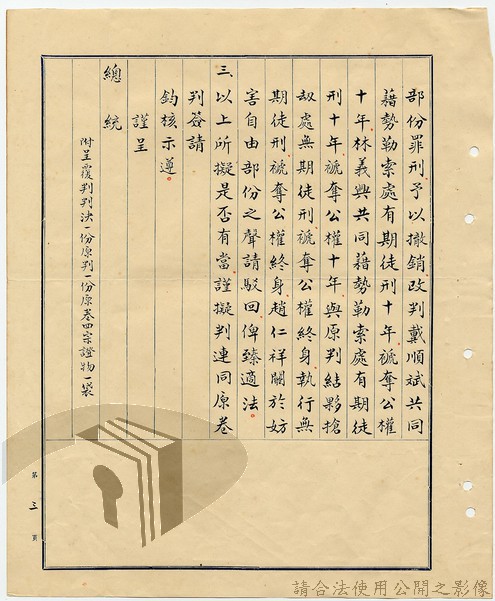 部份罪刑予以撤銷改判戴順斌共同
藉勢勒索處有期徒刑十年褫奪公權
十年林義興共同藉勢勒索處有期徒
刑十年褫奪公權十年與原判結夥搶
劫處無期徒刑褫奪公權終身執行無
期徒刑褫奪公權終身趙仁祥關於妨
害自由部份之聲請駁回俾臻適法
三、以上所擬是否有當謹擬判連同原卷
判簽請
鈞核示遵
謹呈
總統
附呈覆判判決一份原判一份原卷四宗證物一袋
第三頁
請合法使用公開之影像